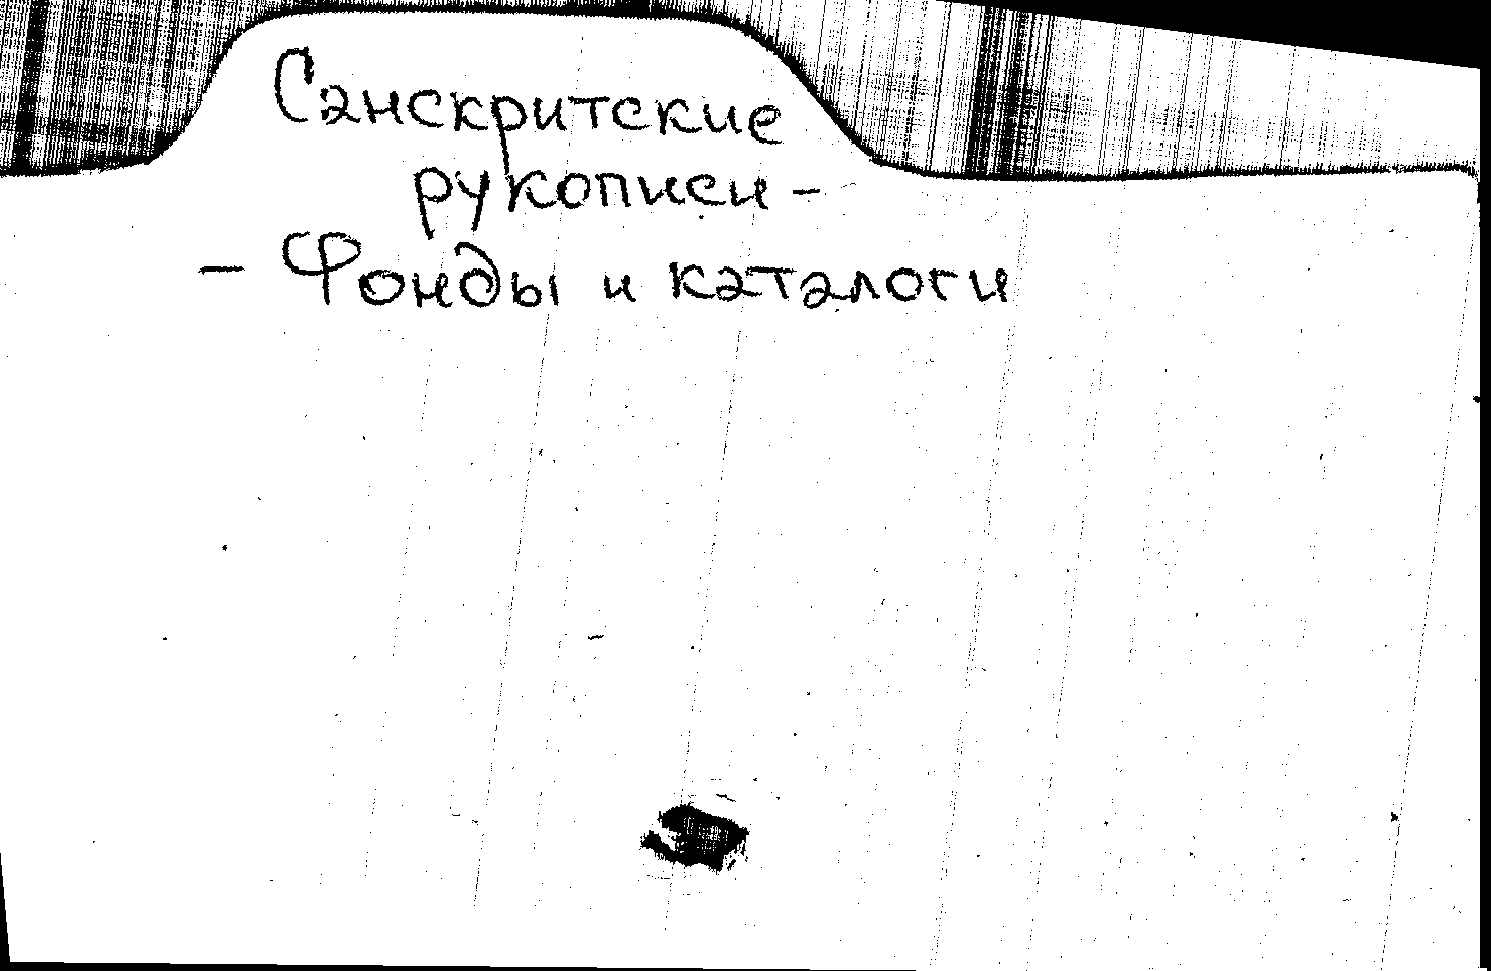 Санскритские
рукописи -
- Фонды и каталоги